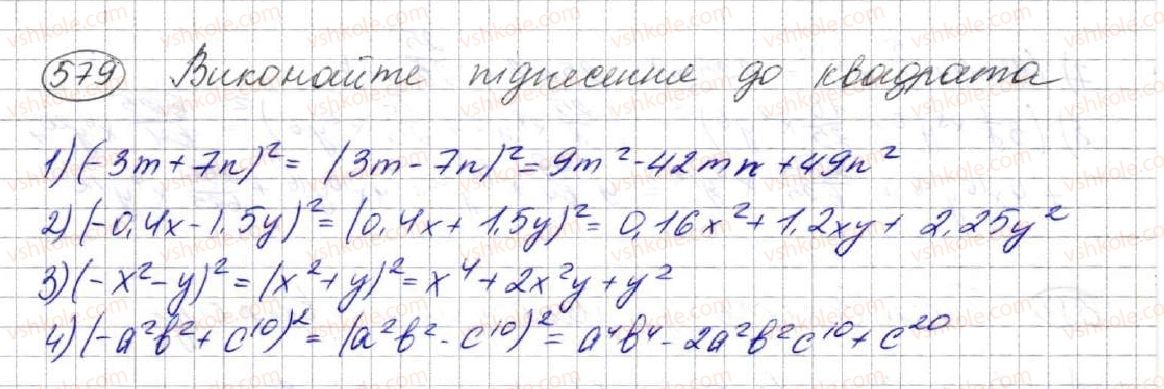 579 Виконайте піднесення до квадрата
1) (-3m + 7n)² = (3m - 7n)² = 9m² - 42mn + 49n²
2) (-0,4x - 1,5y)² = (0,4x + 1,5y)² = 0,16x² + 1,2xy + 2,25y²
3) (-x² - y)² = (x² + y)² = x⁴ + 2x²y + y²
4) (-a²b² + c¹⁰)² = (a²b² - c¹⁰)² = a⁴b⁴ - 2a²b²c¹⁰ + c²⁰